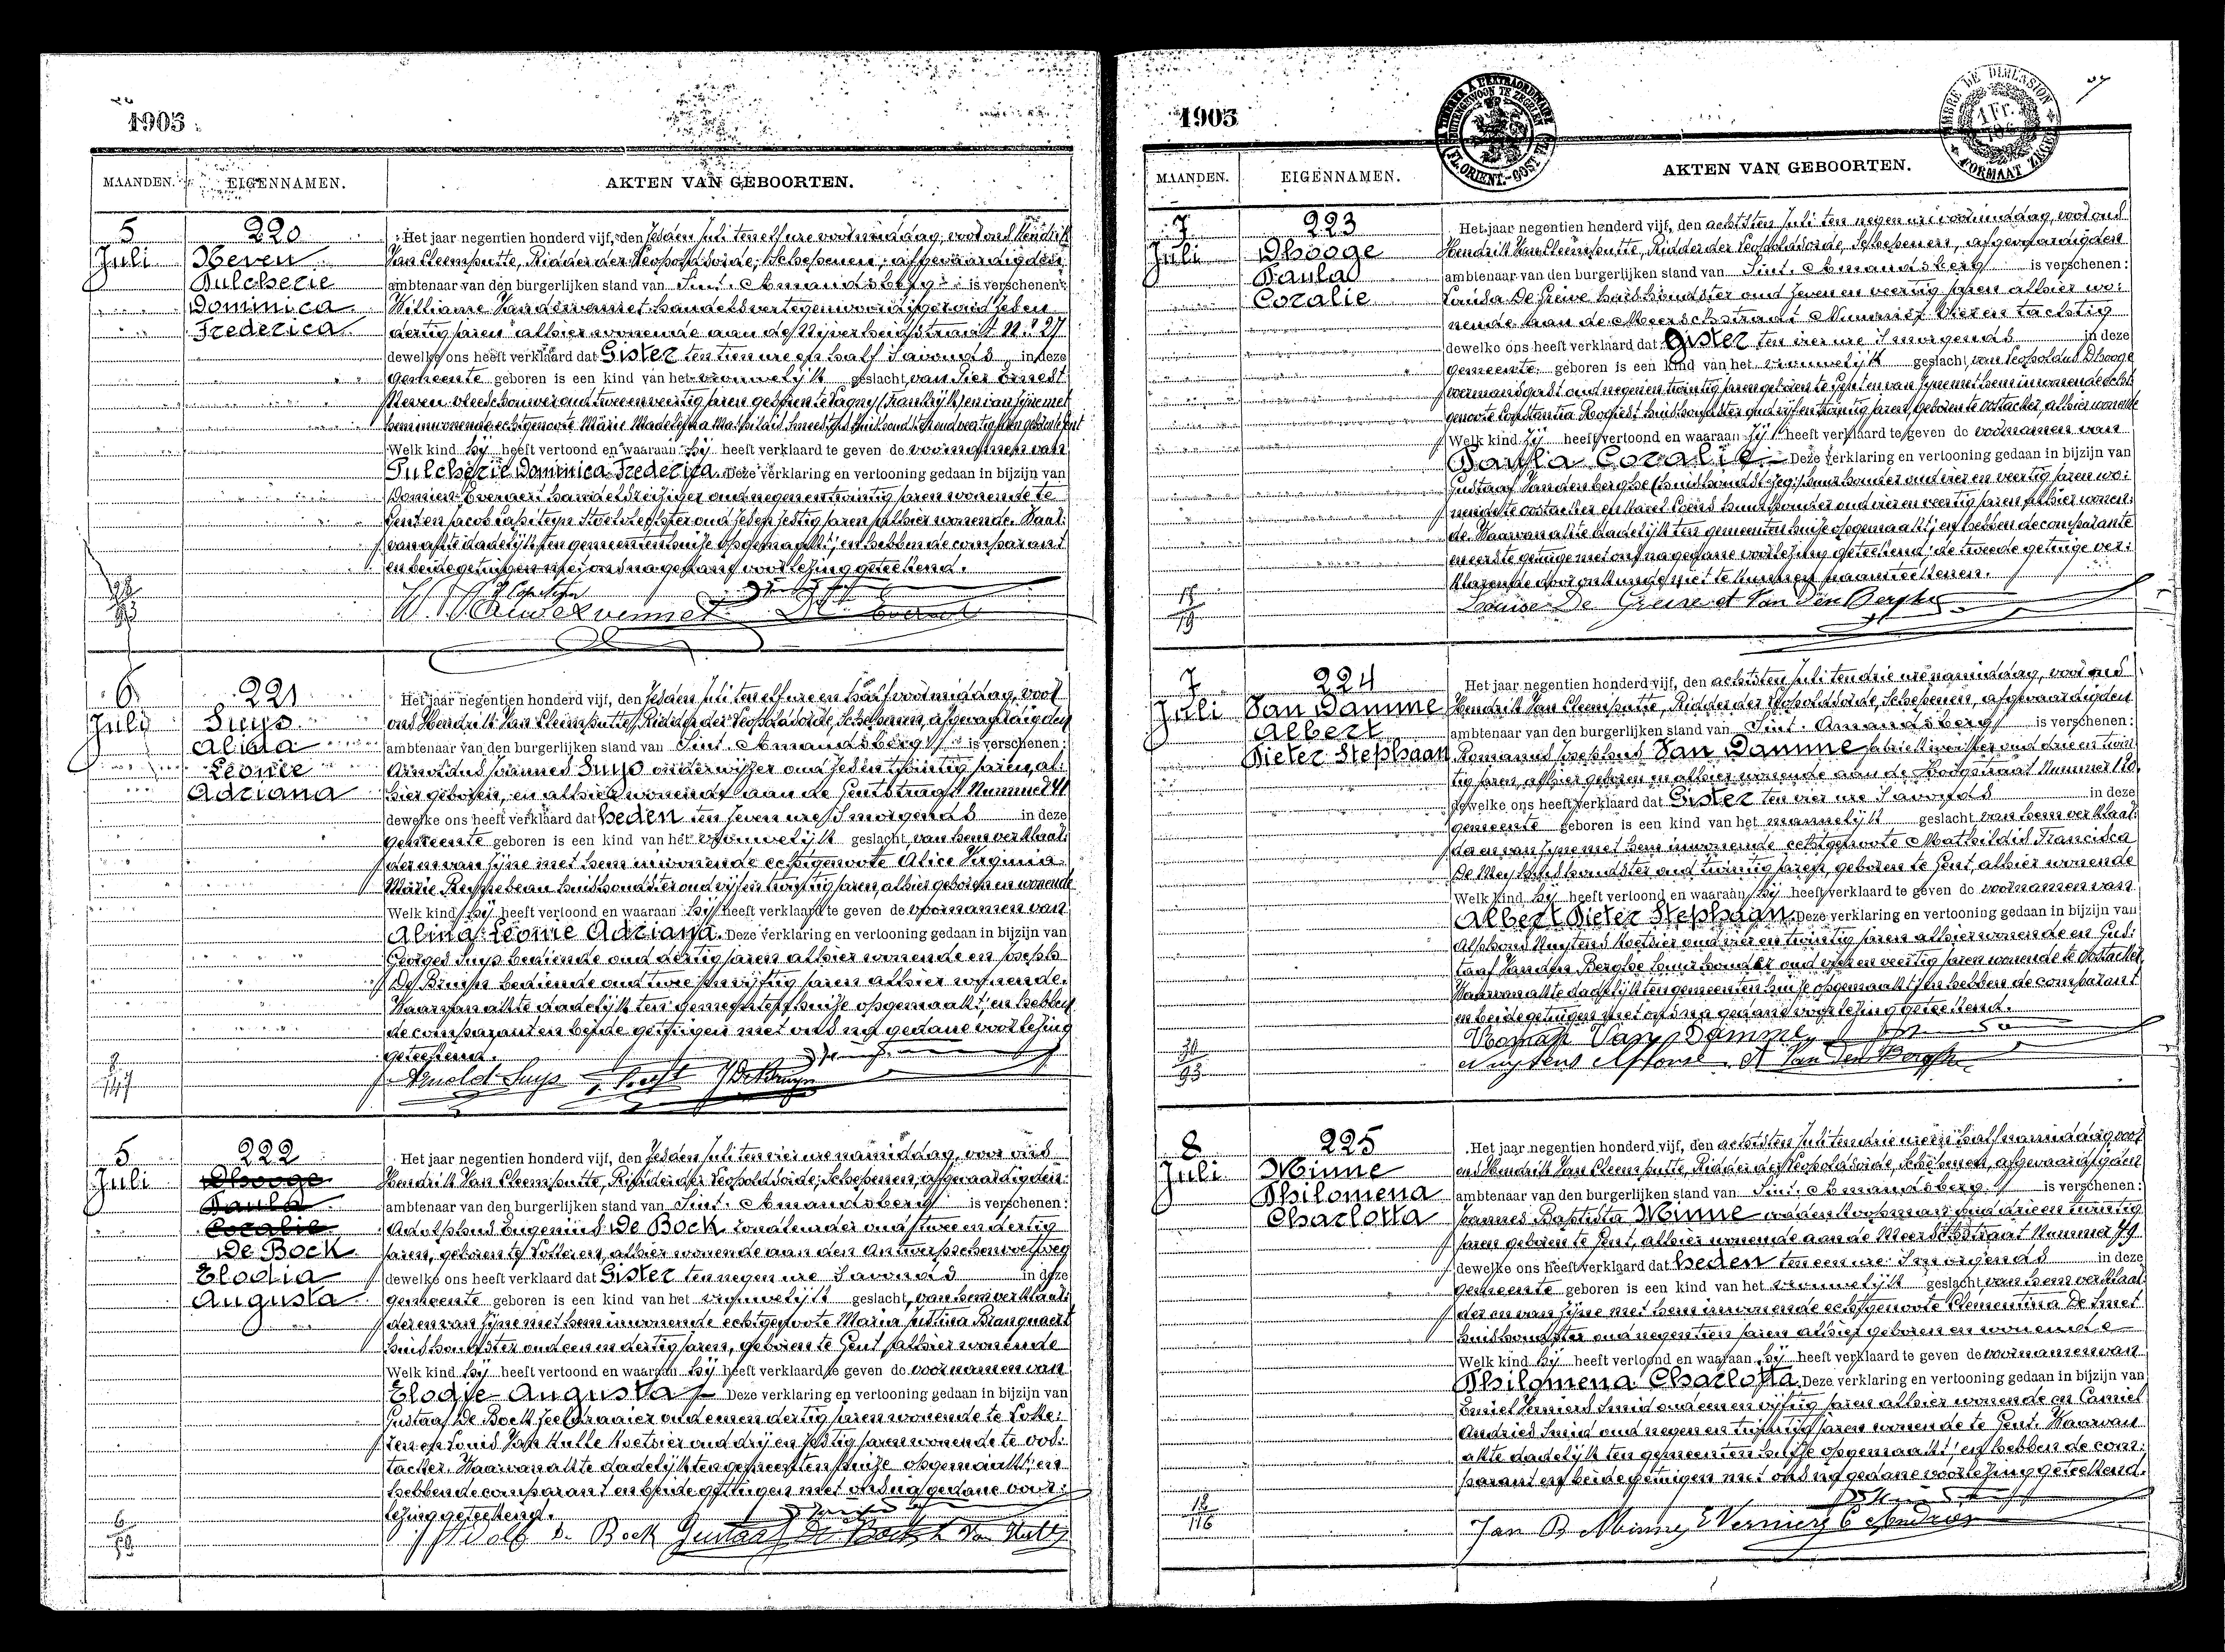 1905
MAANDEN. EIGENNAMEN. AKTEN VAN GEBOORTEN.
5 Juli
220
Neven
Pulcherie
Dominica
Frederica
Het jaar negentien honderd vijf, den zesden Juli ten elf ure voormiddag, voor ons Hendrik
Van Cleemputte, Ridder der Leopoldsorde, Schepenen, afgevaardigden
ambtenaar van den burgerlijken stand van Sint. Amandsberg is verschenen:
Williame Vandervennet handelsvertegenwoordiger oud zeven
dertig jaren alhier wonende aan de Nijverheidstraat N.º 27
dewelke ons heeft verklaard dat Gister ten tien ure en half 's avonds in deze
gemeente geboren is een kind van het vrouwelijk geslacht, van Pier Ernest
Neven vleeschouwer oud twee en veertig jaren geboren te (Frankrijk) en van zijne met
hem inwonende echtgenoote Marie Madelena
Welk kind hij heeft vertoond en waaraan hij heeft verklaard te geven de voornamen van
Pulcherie Dominica Frederica. Deze verklaring en vertooning gedaan in bijzijn van
Domien Everaert handelsreiziger oud negen en twintig jaren wonende te
Gent en Jacob Capiteyn oud zeven zestig jaren alhier wonende. Waar:
van akte dadelijk ten gemeentenhuize opgemaakt; en hebben de comparant
en beide getuigen met ons na gedane voorlezing geteekend.
6 Juli
221
Suys
Alina
Leonie
Adriana
Het jaar negentien honderd vijf, den zesden Juli ten elf ure en half voormiddag, voor
ons Hendrik Van Cleemputte, Ridder der Leopoldsorde, Schepenen, afgevaardigden
ambtenaar van den burgerlijken stand van Sint. Amandsberg is verschenen:
Arnoldus Joannes Suys onderwijzer oud zesen twintig jaren, al:
hier geboren, en alhier wonende aan de Gentstraat Nummer 41
dewelke ons heeft verklaard dat heden ten zeven ure 's morgends in deze
gemeente geboren is een kind van het vrouwelijk geslacht, van hem verklaar:
der en van zijne met hem inwonende echtgenoote Alice Virginia
Marie Reynebeau huishoudster oud vijf en twintig jaren, alhier geboren en wonende
Welk kind hij heeft vertoond en waaraan hij heeft verklaard te geven de voornamen van
Alina Leonie Adriana. Deze verklaring en vertooning gedaan in bijzijn van
Georges Suys bediende oud dertig jaren alhier wonende en Joseph
De Bruyn bediende oud twee en vijftig jaren alhier wonende.
Waarvan akte dadelijk ten gemeentenhuize opgemaakt; en hebben
de comparant en beide getuigen met ons na gedane voorlezing
geteekend.
Arnold Suys J De Bruyn
5 Juli
222
Dhooge
Paula
Coralie
De Bock
Elodia
Augusta
Het jaar negentien honderd vijf, den zesden Juli ten vier ure namiddag, voor ons
Hendrik Van Cleemputte, Ridder der Leopoldsorde, Schepenen, afgevaardigden
ambtenaar van den burgerlijken stand van Sint. Amandsberg is verschenen:
Adolphus Eugenius De Bock oud twee en dertig
jaren, geboren te Lokeren, alhier wonende aan den Antwerpschen voetweg
dewelke ons heeft verklaard dat Gister ten negen ure 's avonds in deze
gemeente geboren is een kind van het vrouwelijk geslacht, van hem verklaar:
der en van zijne met hem inwonende echtgenoote Maria Justina Branquaert
huishoudster oud een en dertig jaren, geboren te Gent alhier wonende
Welk kind hij heeft vertoond en waaraan hij heeft verklaard te geven de voornamen van
Elodie Augusta Deze verklaring en vertooning gedaan in bijzijn van
Gustaaf De Bock zeeldraaier oud een en dertig jaren wonende te Loke:
ren en Louis Van Hulle koetsier oud drij en zestig jaren wonende te Oos:
tacker. Waarvan akte dadelijk ten gemeentenhuize opgemaakt; en
hebben de comparant en beide getuigen met ons na gedane voor:
lezing geteekend.
Adolf De Bock Gustaaf De Bock L Van Hulle
1905
MAANDEN. EIGENNAMEN. AKTEN VAN GEBOORTEN.
7 Juli
223
Dhooge
Paula
Coralie
Het jaar negentien honderd vijf, den achtsten Juli ten negen ure voormiddag, voor ons
Hendrik Van Cleemputte, Ridder der Leopoldsorde, Schepenen, afgevaardigden
ambtenaar van den burgerlijken stand van Sint. Amandsberg is verschenen:
Louisa De Greive huishoudster oud zeven en veertig jaren alhier wo:
nende aan de Meerschstraat Nummer Vier en tachtig
dewelke ons heeft verklaard dat Gister ten vier ure 's morgends in deze
gemeente geboren is een kind van het vrouwelijk geslacht, van Leopoldus Dhooge
voermansgast oud negen en twintig jaren geboren te Gent en van zijne met hem inwonende echt
genoote Constantia Rogiest huishoudster oud vijf en twintig jaren, geboren te Oostacker, alhier wonende
Welk kind zij heeft vertoond en waaraan zij heeft verklaard te geven de voornamen van
Paula Coralie Deze verklaring en vertooning gedaan in bijzijn van
Gustaaf Vanden Berghe huurhouder oud vier en veertig jaren wo:
nende te Oostacker en Karel Coens huurhouder oud vier en veertig jaren alhier wonen:
de. Waarvan akte dadelijk ten gemeentenhuize opgemaakt; en hebben de comparante
en eerste getuige met ons na gedane voorlezing geteekend; de tweede getuige ver:
klarende door onkunde niet te kunnen naamteekenen.
Louise De Greive A Van Den Berghe
7 Juli
224
Van Damme
Albert
Pieter Stephaan
Het jaar negentien honderd vijf, den achtsten Juli ten drie ure namiddag, voor ons
Hendrik Van Cleemputte, Ridder der Leopoldsorde, Schepenen, afgevaardigden
ambtenaar van den burgerlijken stand van Sint. Amandsberg is verschenen:
Romanus Josephus Van Damme fabriekwerker oud drie en twin
tig jaren, alhier geboren en alhier wonende aan de Hoogstraat Nummer 120,
dewelke ons heeft verklaard dat Gister ten vier ure 's avonds in deze
gemeente geboren is een kind van het mannelijk geslacht van hem verklaar:
der en van zijne met hem inwonende echtgenoote Mathildis Francisca
De Mey huishoudster oud twintig jaren, geboren te Gent, alhier wonende
Welk kind hij heeft vertoond en waaraan hij heeft verklaard te geven de voornamen van
Albert Pieter Stephaan. Deze verklaring en vertooning gedaan in bijzijn van
Alphons Nuytens koetsier oud vier en twintig jaren alhier wonende en Gus:
taaf Vanden Berghe huurhouder oud vier en veertig jaren wonende te Oostacker.
Waarvan akte dadelijk ten gemeentenhuize opgemaakt; en hebben de comparant
en beide getuigen met ons na gedane voorlezing geteekend.
Roman Van Damme
Nuytens Alfons A Van Den Berghe
8 Juli
225
Minne
Philomena
Charlotta
Het jaar negentien honderd vijf, den achtsten Juli ten drie ure en half namiddag, voor
ons Hendrik Van Cleemputte, Ridder der Leopoldsorde, Schepenen, afgevaardigden
ambtenaar van den burgerlijken stand van Sint. Amandsberg is verschenen:
Joannes Baptista Minne oud drie en twintig
jaren geboren te Gent, alhier wonende aan de Meerschstraat Nummer 49
dewelke ons heeft verklaard dat heden ten een ure 's morgends in deze
gemeente geboren is een kind van het vrouwelijk geslacht van hem verklaar
der en van zijne met hem inwonende echtgenoote Clementina De Smet
huishoudster oud negentien jaren alhier geboren en wonende
Welk kind hij heeft vertoond en waaraan hij heeft verklaard te geven de voornamen van
Philomena Charlotta. Deze verklaring en vertooning gedaan in bijzijn van
Emiel Verniers smid oud een en vijftig jaren alhier wonende en Camiel
Andries smid oud negen en twintig jaren wonende te Gent. Waarvan
akte dadelijk ten gemeentenhuize opgemaakt; en hebben de com:
parant en beide getuigen met ons na gedane voorlezing geteekend.
Jan B Minne E Verniers C Andries